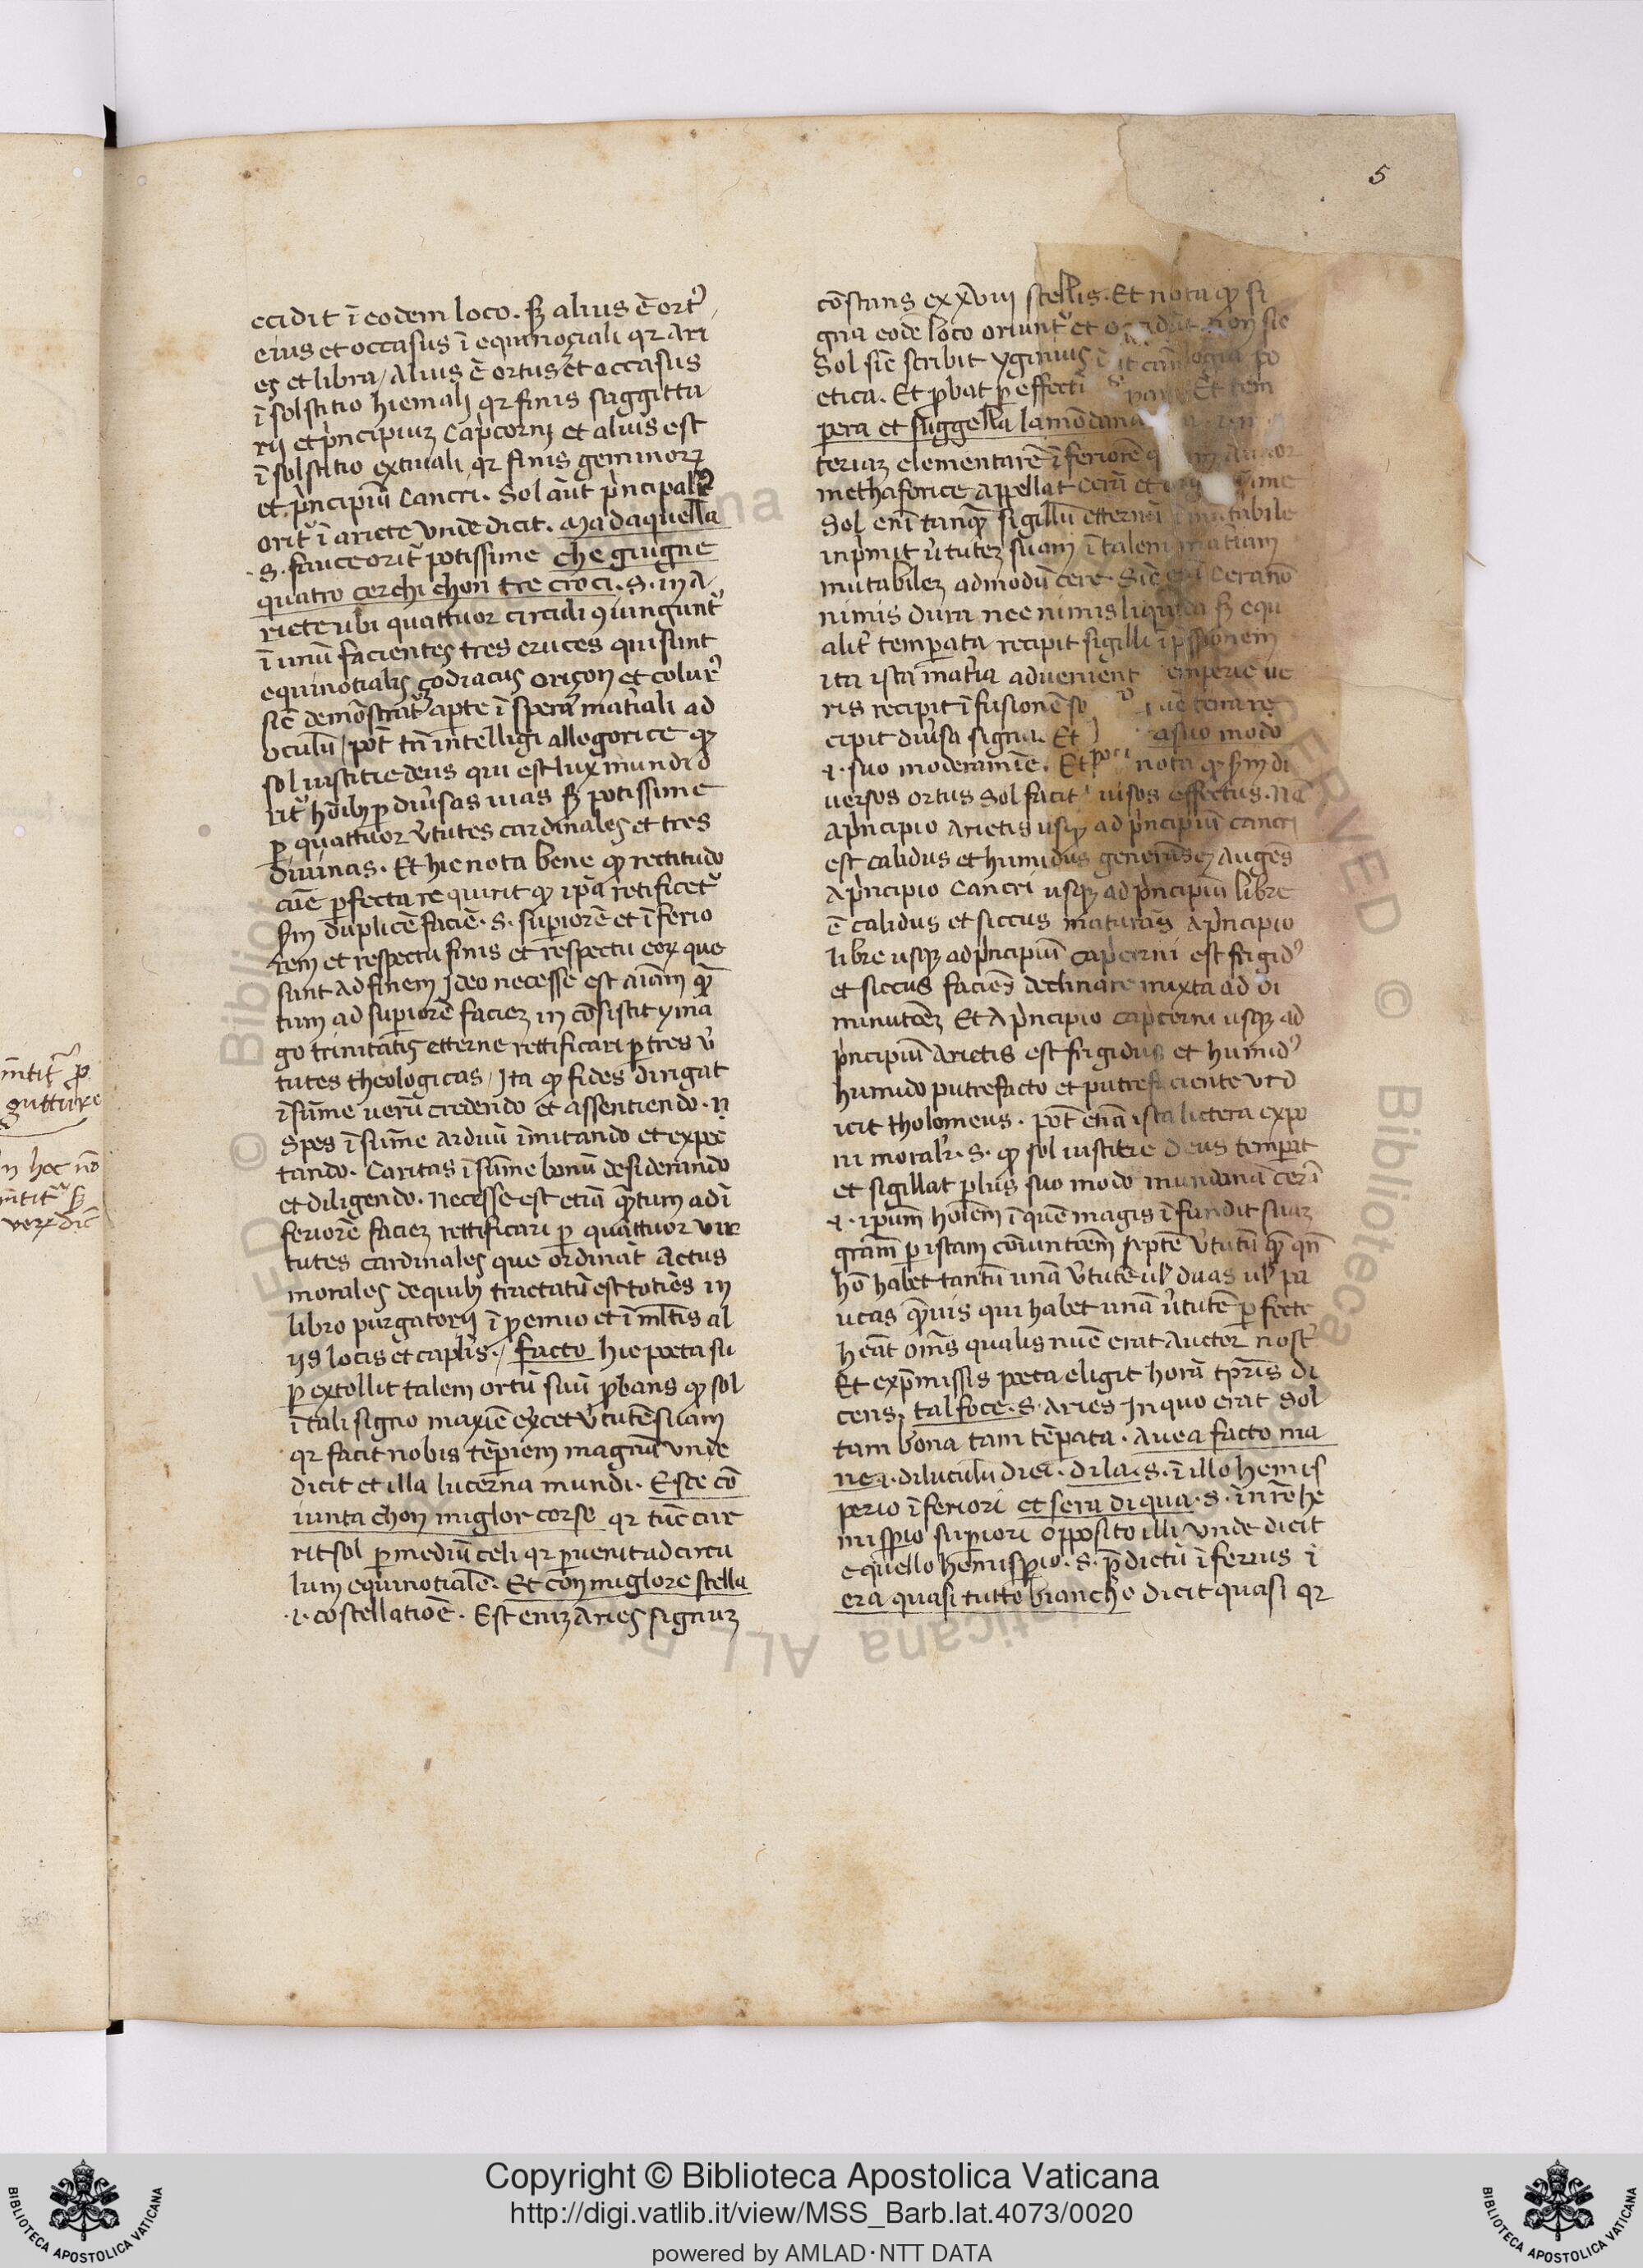 5
ecidit ī eodem loco. sꝫ alius ē ortꝰ
eius et occasus ī equinoçiali qꝛ ari
es et libra / alius ē ortus et occasus
ī solstitio hiemalj qꝛ finis saggitta
rij et pͥncipiuꝫ Capcornj et alius est
ī solstitio extiuali qꝛ finis geminoꝝ
et pͥncipiū Cancri. Sol aūt pͥncipalꝛ̉
orit᷑ ī ariete vnde dicit. Ma da quella
.s. fauce orit᷑ potissime che giugne
quatro cerchi chon tre croci .s. in A
riete ubi quattuor circuli ꝯiungunt᷑
ī unū facientes tres cruces qui sunt
equinotialis ȝodiacus oriçon et colurꝰ
sic̄ demōstrat᷑ apte ī spera mat̉iali ad
oculū / pōt tn̄ intelligi allegorice ꝙ
sol iustitie deus qui est lux mundi o
rit᷑ hoībꝫ ꝑ diūsas uias sꝫ potissime
ꝑ quattuor v̉tutes cardinales et tres
diuinas. Et hic nota bene ꝙ rectitudo
ꝑfecta requirit ꝙ ip̄a retificet᷑
sm̄ duplicē faciē .s. suꝑiorē et īferio
rem et respectu finis et respectu eoꝝ que
sunt ad finem Ideo necesse est aīam qᷓ
tum ad suꝑiorē facieꝫ in cōsistit yma
go trinitatis etterne rettificari ꝑ tres v̉
tutes theologicas / Ita ꝙ fides dirigat
ī sūme uerū credendo et assentiendo.
Spes ī sūme arduū īmitando et expec
tando. Caritas ī sūme bonū desiderando
et diligendo. Necesse est etiā qᷓtum ad ī
feriorē facieꝫ rettificari ꝑ quattuor vir
tutes cardinales que ordinat Actus
morales de quibꝫ trictatū est totiēs in
libro purgatorij ī ꝓemio et ī ml̄tis al
ijs locis et caplis. / facto hic poeta su
ꝑ extollit talem ortū suū ꝓbans ꝙ sol
ī tali signo maxīe ex̉cet v̉tutē suam
qꝛ facit nobis tēperiem magnā vnde
dicit et illa lucerna mundi. Esce cō
iunta chon miglor corso qꝛ tūc cur
rit sol ꝑ mediū celi qꝛ ꝑuenit ad circu
lum equinotialē. Et con miglore stella
.i. costellatiōe. Est eniꝫ Aries signuꝫ
cōstans ex xviii stellis. Et nota ꝙ si
gna eodē loco oriunt᷑ et non sic
Sol sic̄ scribit yginius po
etica. Et ꝓbat ꝑ effectū Et tem
pera et suggella la mondana
teriaꝫ elementarē īferiorē Auctor
methaforice appellat cerā et
Sol enī tanqᷓ sigillū etternū īmutabile
inpͥmit v̉tuteꝫ suam ī talem mat̉iam
mutabileꝫ admodū cere. Sic̄ Cera nō
nimis dura nec nimis liquida sꝫ equ
alit̉ temꝑata recipit sigilli īpssionem
ita ista mat̉ia advenient emperie ue
ris recipit īfusionē so
cipit diūsa signa. Et a suo modo
.i. suo moderamīe. Et nota ꝙ sm̄ di
uersos ortus Sol facit effectus. Nā
a pͥncipio Arietis usqꝫ ad pͥncipiū cancri
est calidus et humidus generās Augēs
A pͥncipio Cancri usqꝫ ad pͥncipiū libre
ē calidus et siccus maturās A pͥncipio
libre usqꝫ ad pͥncipiū capcorni est frigidꝰ
et siccus faciēs declinare iuxta ad di
minutōeꝫ Et A pͥncipio capcorni usqꝫ ad
pͥncipiū Arietis est frigidus et humidꝰ
humido putrefacto et putrefaciente vt d
icit tholomeus. Pōt etiā ista lictera expo
ni moralr̉ .s. ꝙ sol iustitie Deus temꝑat
et sigillat plus suo modo mundanā cerā
.i. ipūm hoīem ī quē magis īfundit suaꝫ
grām ꝑ istam cōiunctōem septē v̉tutū
hō habet tantū unā v̉tutē ul̓ duas ul̓ pa
ucas qᷓuis qui habet unā v̉tutē ꝑfecte
heāt oms̄ qualis nūc erat Auctor nostꝰ
Et ex p̄missis poeta eligit horā tp̄ris di
cens. tal foce .s. Aries In quo erat Sol
tam bona tam tēperata. Avea facto ma
ne .i. diluculū diei. di la .s. ī illo hemis
perio īferiori et sera di qua .s. in hoc he
misꝑio suꝑiori opposito illi vnde dicit
e quello hemisꝑio .s. p̄dictū īferius i
era quasi tutto biancho dicit quasi qꝛ
gutture
Copyright © Biblioteca Apostolica Vaticana
http://digi.vatlib.it/view/MSS_Barb.lat.4073/0020
powered by AMLAD·NTT DATA
BIBLIOTECA APOSTOLICA VATICANA
BIBLIOTECA APOSTOLICA VATICANA